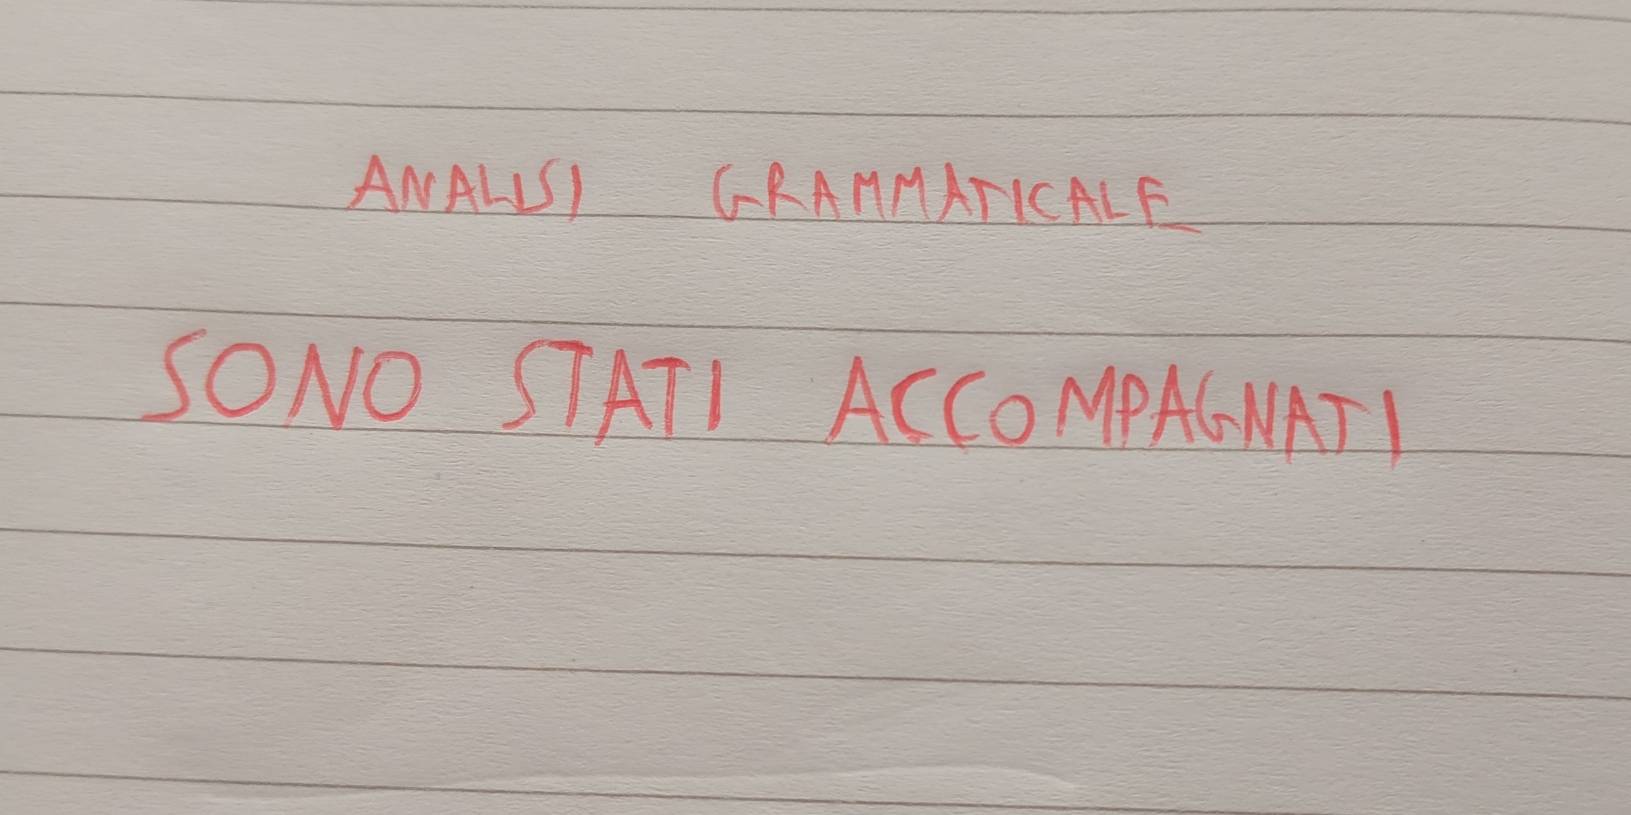 ANALISI GRAMMATICALE
SONO STATI ACCOMPAGNATI